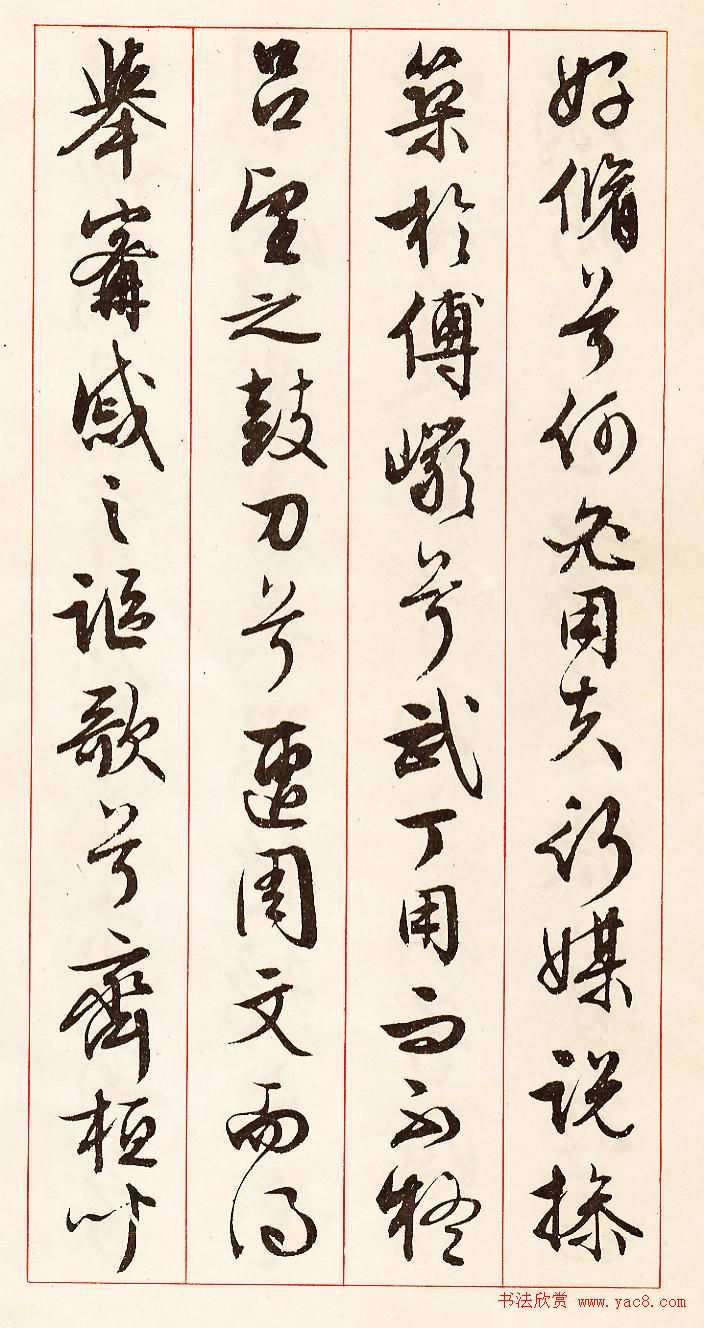 好脩兮何必用夫行媒說操
築於傅巖兮武丁用而不疑
呂望之鼓刀兮遭周文而得
舉甯戚之謳歌兮齊桓聞
书法欣赏 www.yac8.com